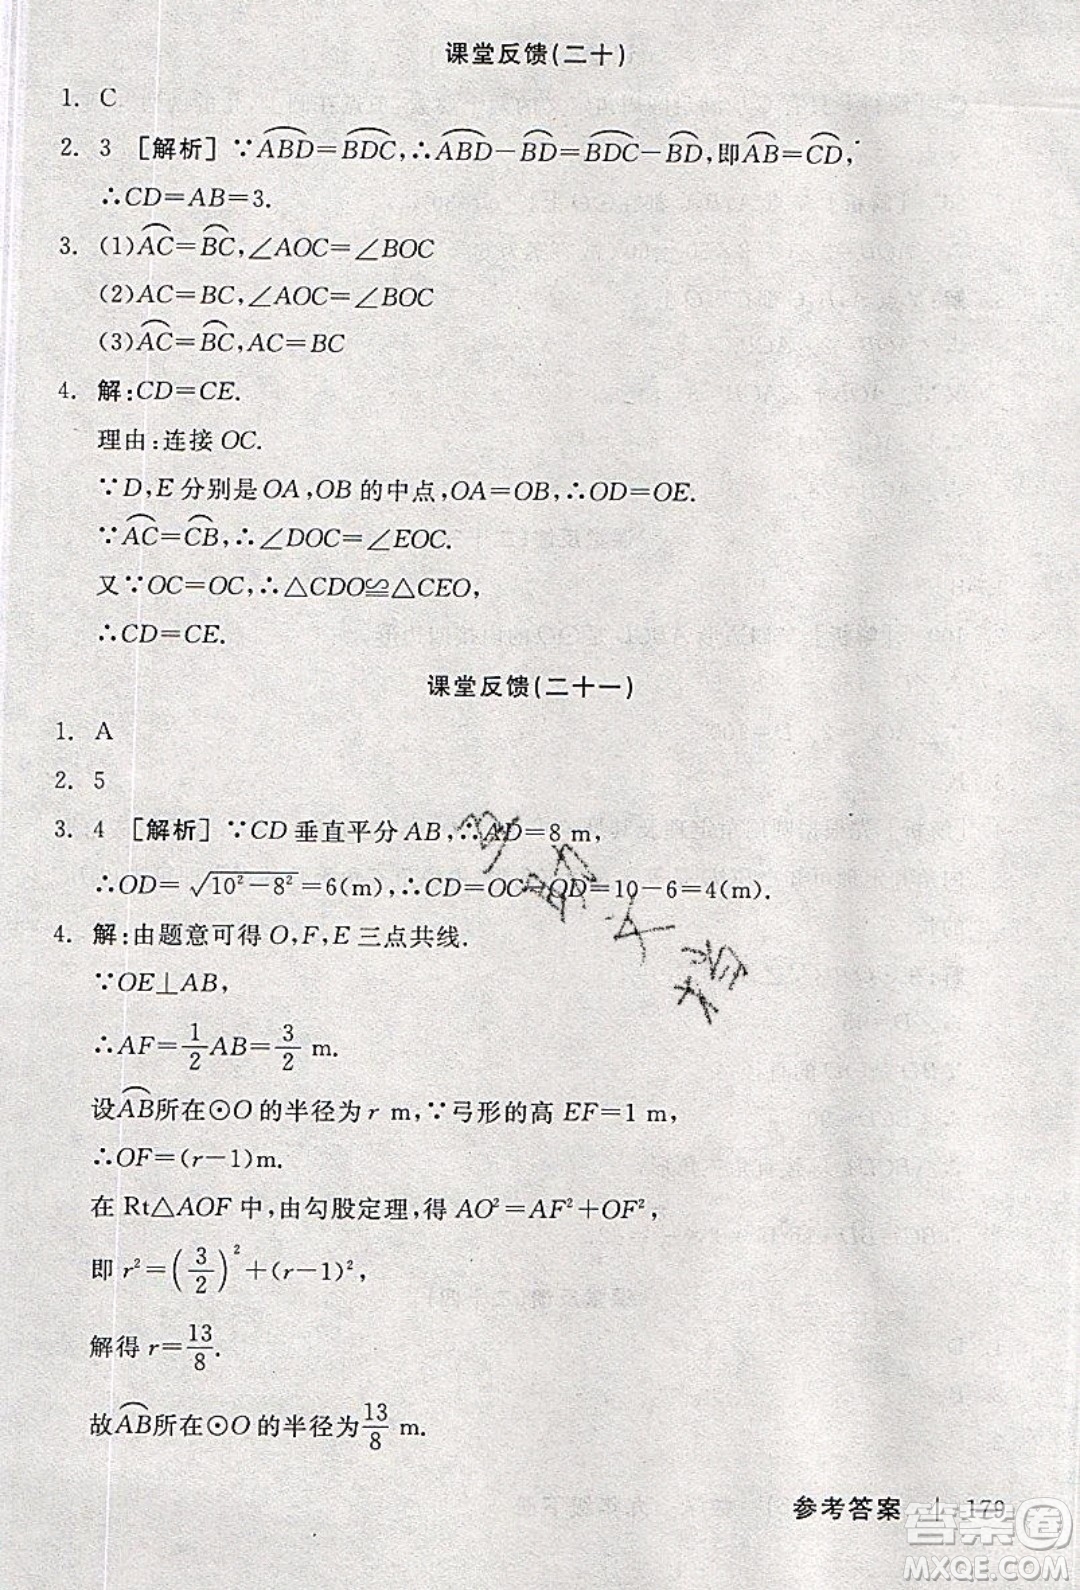 课堂反馈(二十)
1. C
2. 3 [解析]∵⌒ABD=⌒BDC,∴⌒ABD-⌒BD=⌒BDC-⌒BD,即⌒AB=⌒CD,
∴CD=AB=3.
3. (1)⌒AC=⌒BC,∠AOC=∠BOC
(2)AC=BC,∠AOC=∠BOC
(3)⌒AC=⌒BC,AC=BC
4. 解:CD=CE.
理由:连接OC.
∵D,E分别是OA,OB的中点,OA=OB,∴OD=OE.
∵⌒AC=⌒CB,∴∠DOC=∠EOC.
又∵OC=OC,∴△CDO≌△CEO,
∴CD=CE.
课堂反馈(二十一)
1. A
2. 5
3. 4 [解析]∵CD垂直平分AB,∴AD=8 m,
∴OD=√(10²-8²)=6(m),∴CD=OC-OD=10-6=4(m).
4. 解:由题意可得O,F,E三点共线.
∵OE⊥AB,
∴AF=1/2AB=3/2 m.
设⌒AB所在⊙O的半径为r m,∵弓形的高EF=1 m,
∴OF=(r-1)m.
在Rt△AOF中,由勾股定理,得AO²=AF²+OF²,
即r²=(3/2)²+(r-1)²,
解得r=13/8.
故⌒AB所在⊙O的半径为13/8 m.
参考答案 | 179
答案圈
MXQE.COM